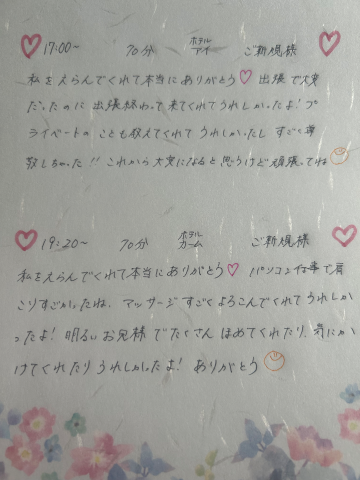 17:00〜 70分 ホテル アイ ご新規様
私をえらんでくれて本当にありがとう♡ 出張で大変
だったのに 出張終わって来てくれてうれしかったよ!プ
ライベートの ことも教えてくれて うれしかったし すごく尊
敬しちゃった!! これから大変になると思うけど頑張ってね
19:20〜 70分 ホテル カーム ご新規様
私をえらんでくれて本当にありがとう♡ パソコン仕事で肩
こりすごかったね。マッサージすごくよろこんでくれてうれしか
ったよ!明るいお兄様でたくさんほめてくれたり、気にか
けてくれたりうれしかったよ!ありがとう